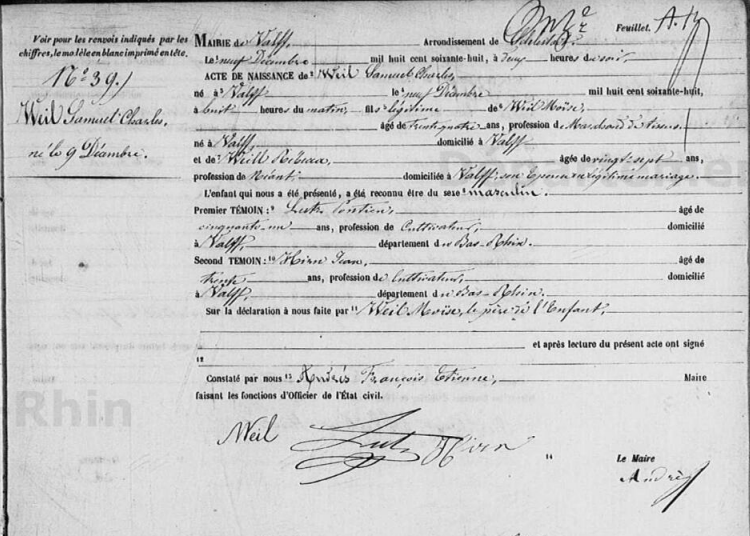 Voir pour les renvois indiqués par les
chiffres, le modèle en blanc imprimé en tête.
N.° 39.
Weil Samuel Charles,
né le 9 Décembre.
Onze
Feuillet.
MAIRIE de Valff, Arrondissement de Schlestadt.
Le neuf Décembre mil huit cent soixante-huit, à deux heures du soir
ACTE DE NAISSANCE de Weil Samuel Charles,
né à Valff le neuf Décembre mil huit cent soixante-huit,
à huit heures du matin, fils légitime de Weil Moïse,
âgé de trente quatre ans, profession de Marchand de tissus
né à Valff, domicilié à Valff
et de Weill Rebecca âgée de vingt sept ans,
profession de Néant domiciliée à Valff, son épouse en légitime mariage.
L'enfant qui nous a été présenté, a été reconnu être du sexe masculin.
Premier TÉMOIN: 9 Lutz Pontien, âgé de
cinquante-un ans, profession de Cultivateur, domicilié
à Valff, département du Bas-Rhin.
Second TEMOIN: 10 Hirn Jean, âgé de
trente ans, profession de Cultivateur, domicilié
à Valff, département du Bas-Rhin.
Sur la déclaration à nous faite par 11 Weil Moïse, le père de l'Enfant,
et après lecture du présent acte ont signé
12
Constaté par nous 13 Andrès François Etienne, Maire
faisant les fonctions d'Officier de l'État civil.
Weil Lutz Hirn
14 Le Maire
Andrès
-Rhin